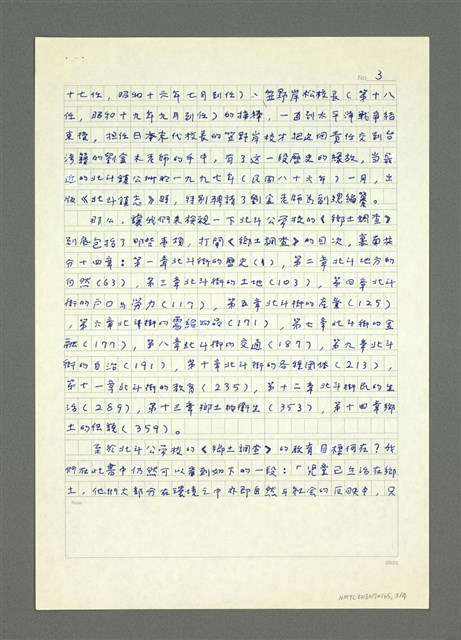 No. 3
十七任，昭和十六年七月到任）、笠野岸松校長（第十八
任，昭和十九年九月到任）的接棒，一直到太平洋戰爭結
束後，担任日本末代校長的笠野岸校才把這個責任交到台
湾籍的劉金木老師的手中，有了这一段歷史的緣故，当最
近的北斗鎮公所於一九九七年（民國八十六年）一月，出
版《北斗鎮志》時，特別親請了劉金老師為副總編纂。
那么，讓我們來檢視一下北斗公学校的《鄉土調查》
到底包括了那些事項，打開《鄉土調查》的目次，裏面共
分十四章：第一章北斗街的歷史（1），第二章北斗地方的
自然（63），第三章北斗街的土地（103），第四章北斗
街的戶口与労力（117），第五章北斗街的產業（125）
，第六章北斗街的需給物品（171），第七章北斗街的金
融（177），第八章北斗街的交通（187），第九章北斗
街的自治（191），第十章北斗街的各種团体（213），
第十一章北斗街的教育（235），第十二章北斗街民的生
活（289），第十三章鄉土的衛生（353），第十四章鄉
土的傳說（359）。
至於北斗公学校的《鄉土調查》的教育目標何在？我
們在此書中仍然可以看到如下的一段：「児童已生活在鄉
土，他們大部分在環境之中亦即自然与社会的反映中，只
NMTL20130170165, 3/9